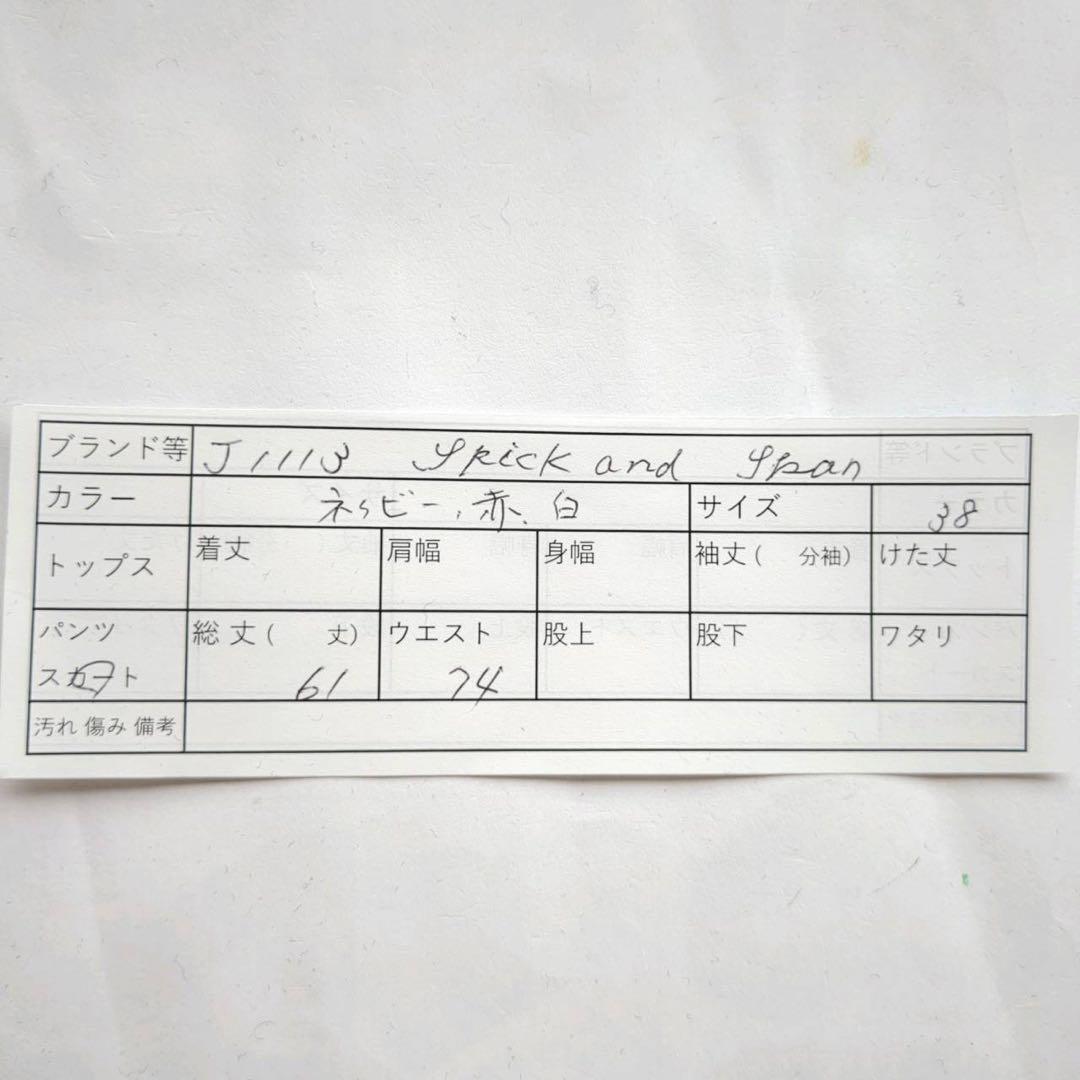 ブランド等 J1113 Spick and Span
カラー ネイビー、赤、白 サイズ 38
トップス 着丈 肩幅 身幅 袖丈( 分袖) けた丈
パンツ 総丈( 丈) ウエスト 股上 股下 ワタリ
スカート 61 74
汚れ 傷み 備考